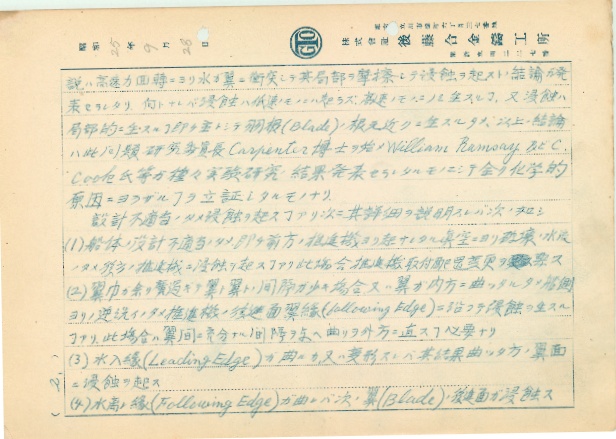 昭和 25 年 9 月 28 日
GTO
株式会社 後藤合金鑄工所
説ハ高速力回時ニヨリ水ガ翼ニ衝突シテ其局部ヲ撃擦シテ浸蝕ヲ起スト結論ガ発
表セラレタリ 何トナレバ浸蝕ハ低速ノモノニハ起ラズ、高速ノモノニノミ生ズル丁、又浸蝕ハ
局部的ニ生スル丁即チ主トシテ羽根(Blade)ノ根元近クニ生スルタメ、以上ノ結論
ハ此ノ問題研究委員長Carpenter博士ヲ始メWilliam Ramsay及C.
Cook氏等ガ種々実験研究ノ結果発表セラレタルモノニシテ全ク化学的
原因ニヨラザル丁ヲ立証シタルモノナリ
設計不適当ノタメ浸蝕ヲ起ス丁アリ次ニ其詳細ヲ説明スレバ次ノ如シ
(1)船体ノ設計不適当ノタメ即チ前方ノ推進機ヨリ起サレタル真空ニヨリ破壊水流
ノタメ後方ノ推進機ニ浸蝕ヲ起ス丁アリ此場合推進機取付配置変更ヲ要ス
(2)翼巾ガ余リ廣過ギテ翼ト翼トノ間隔ガ少キ場合又ハ翼ガ内方ニ曲ッタルタメ
ヨリノ逆流インタメ推進機ノ後進面翼縁(following Edge)ニ沿フテ浸蝕ヲ生スル
丁アリ、此場合ハ翼間ニ充分ナル間隔ヲ与ヘ曲リヲ外方ニ直ス丁必要ナリ
(3)水入縁(Leading Edge)ガ曲ルカ又ハ変形スレバ其結果曲ッタ方ノ翼面
ニ浸蝕ヲ起ス
(4)水離ノ縁(Following Edge)ガ曲レバ次ノ翼(Blade)ノ後進面ガ浸蝕ス
(2)